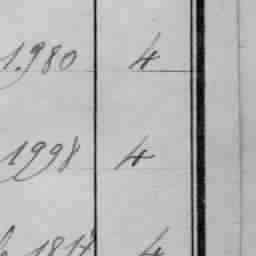 1.980 4
1998 4
1817 4